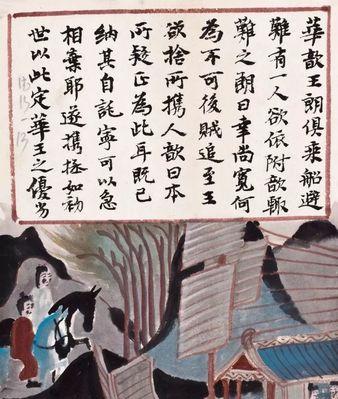 華歆王朗俱乘船避
難有一人欲依附歆輒
難之朗曰幸尚寬何
為不可後賊追至王
欲捨所携人歆曰本
所疑正為此耳既已
納其自託寧可以急
相棄耶遂携拯如初
世以此定華王之優劣